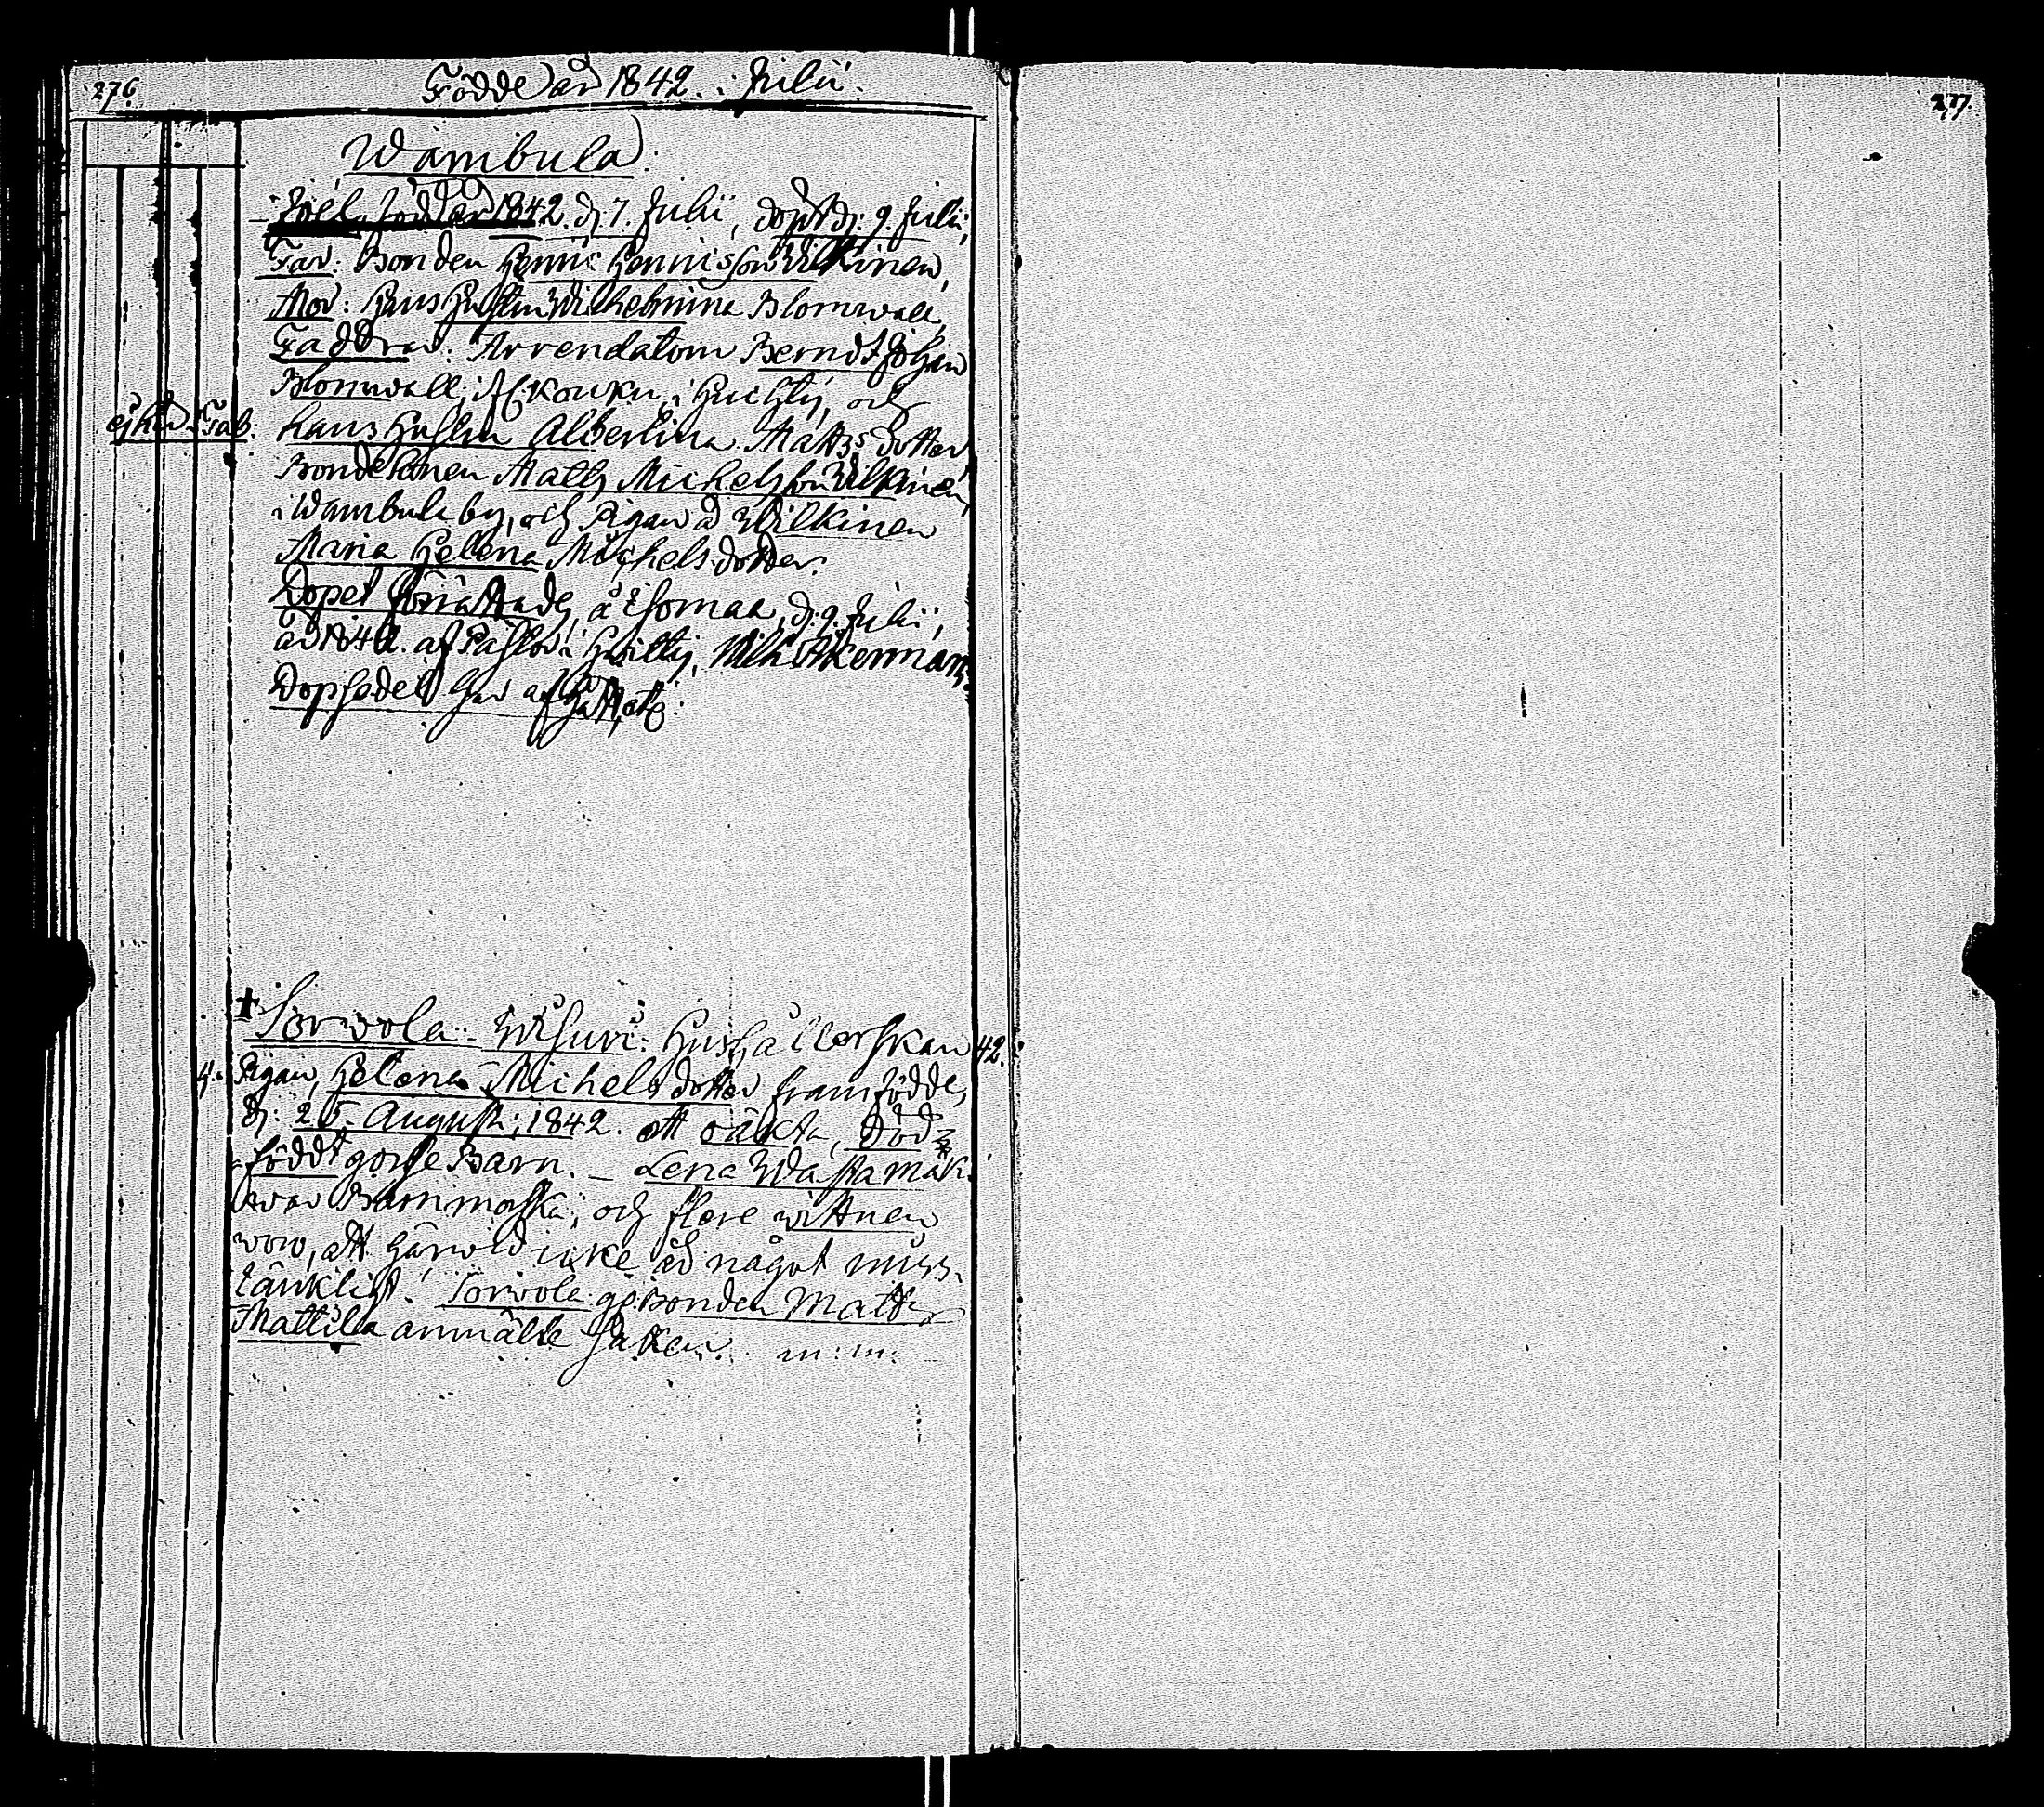 276.
Födde år 1842. i Julii.
277.
Wambula.
Joel, född år 1842. d. 7. Julii, döpt d: 9. Julii,
Far: Bonden Henric Henricsson Wilkinen,
Mor: Hans Hustru Wilhelmina Blomwall,
Faddrar: Arrendatorn Berndt Johan
Blomwall, i Huichtis, och
ej hit Tab: hans Hustru Albertina Mattsdotter
Bondesonen Matts Michelsson Wilkinen,
i Wambula by, och Pigan å Wilkinen
Maria Helena Michelsdotter.
Dopet förrättades å d. 9. Julii,
år 1842. af Pastor i Huittis, Wilh. Åkerman,
Dopsedel har afgått, etc:
† Sorwola. Wisuri: Hushållerskan 42.
4. Pigan, Helena Michelsdotter framfödde,
d: 25. Augusti, 1842. ett oäkta, död-
födt gosse Barn. – Lena Wastamäk.
war Barnmorska; och flere wittnen
woro, att härwid icke är något miss-
tänkligt. Sorwola: Bonden Matts
Mattila anmälte saken. m: m: